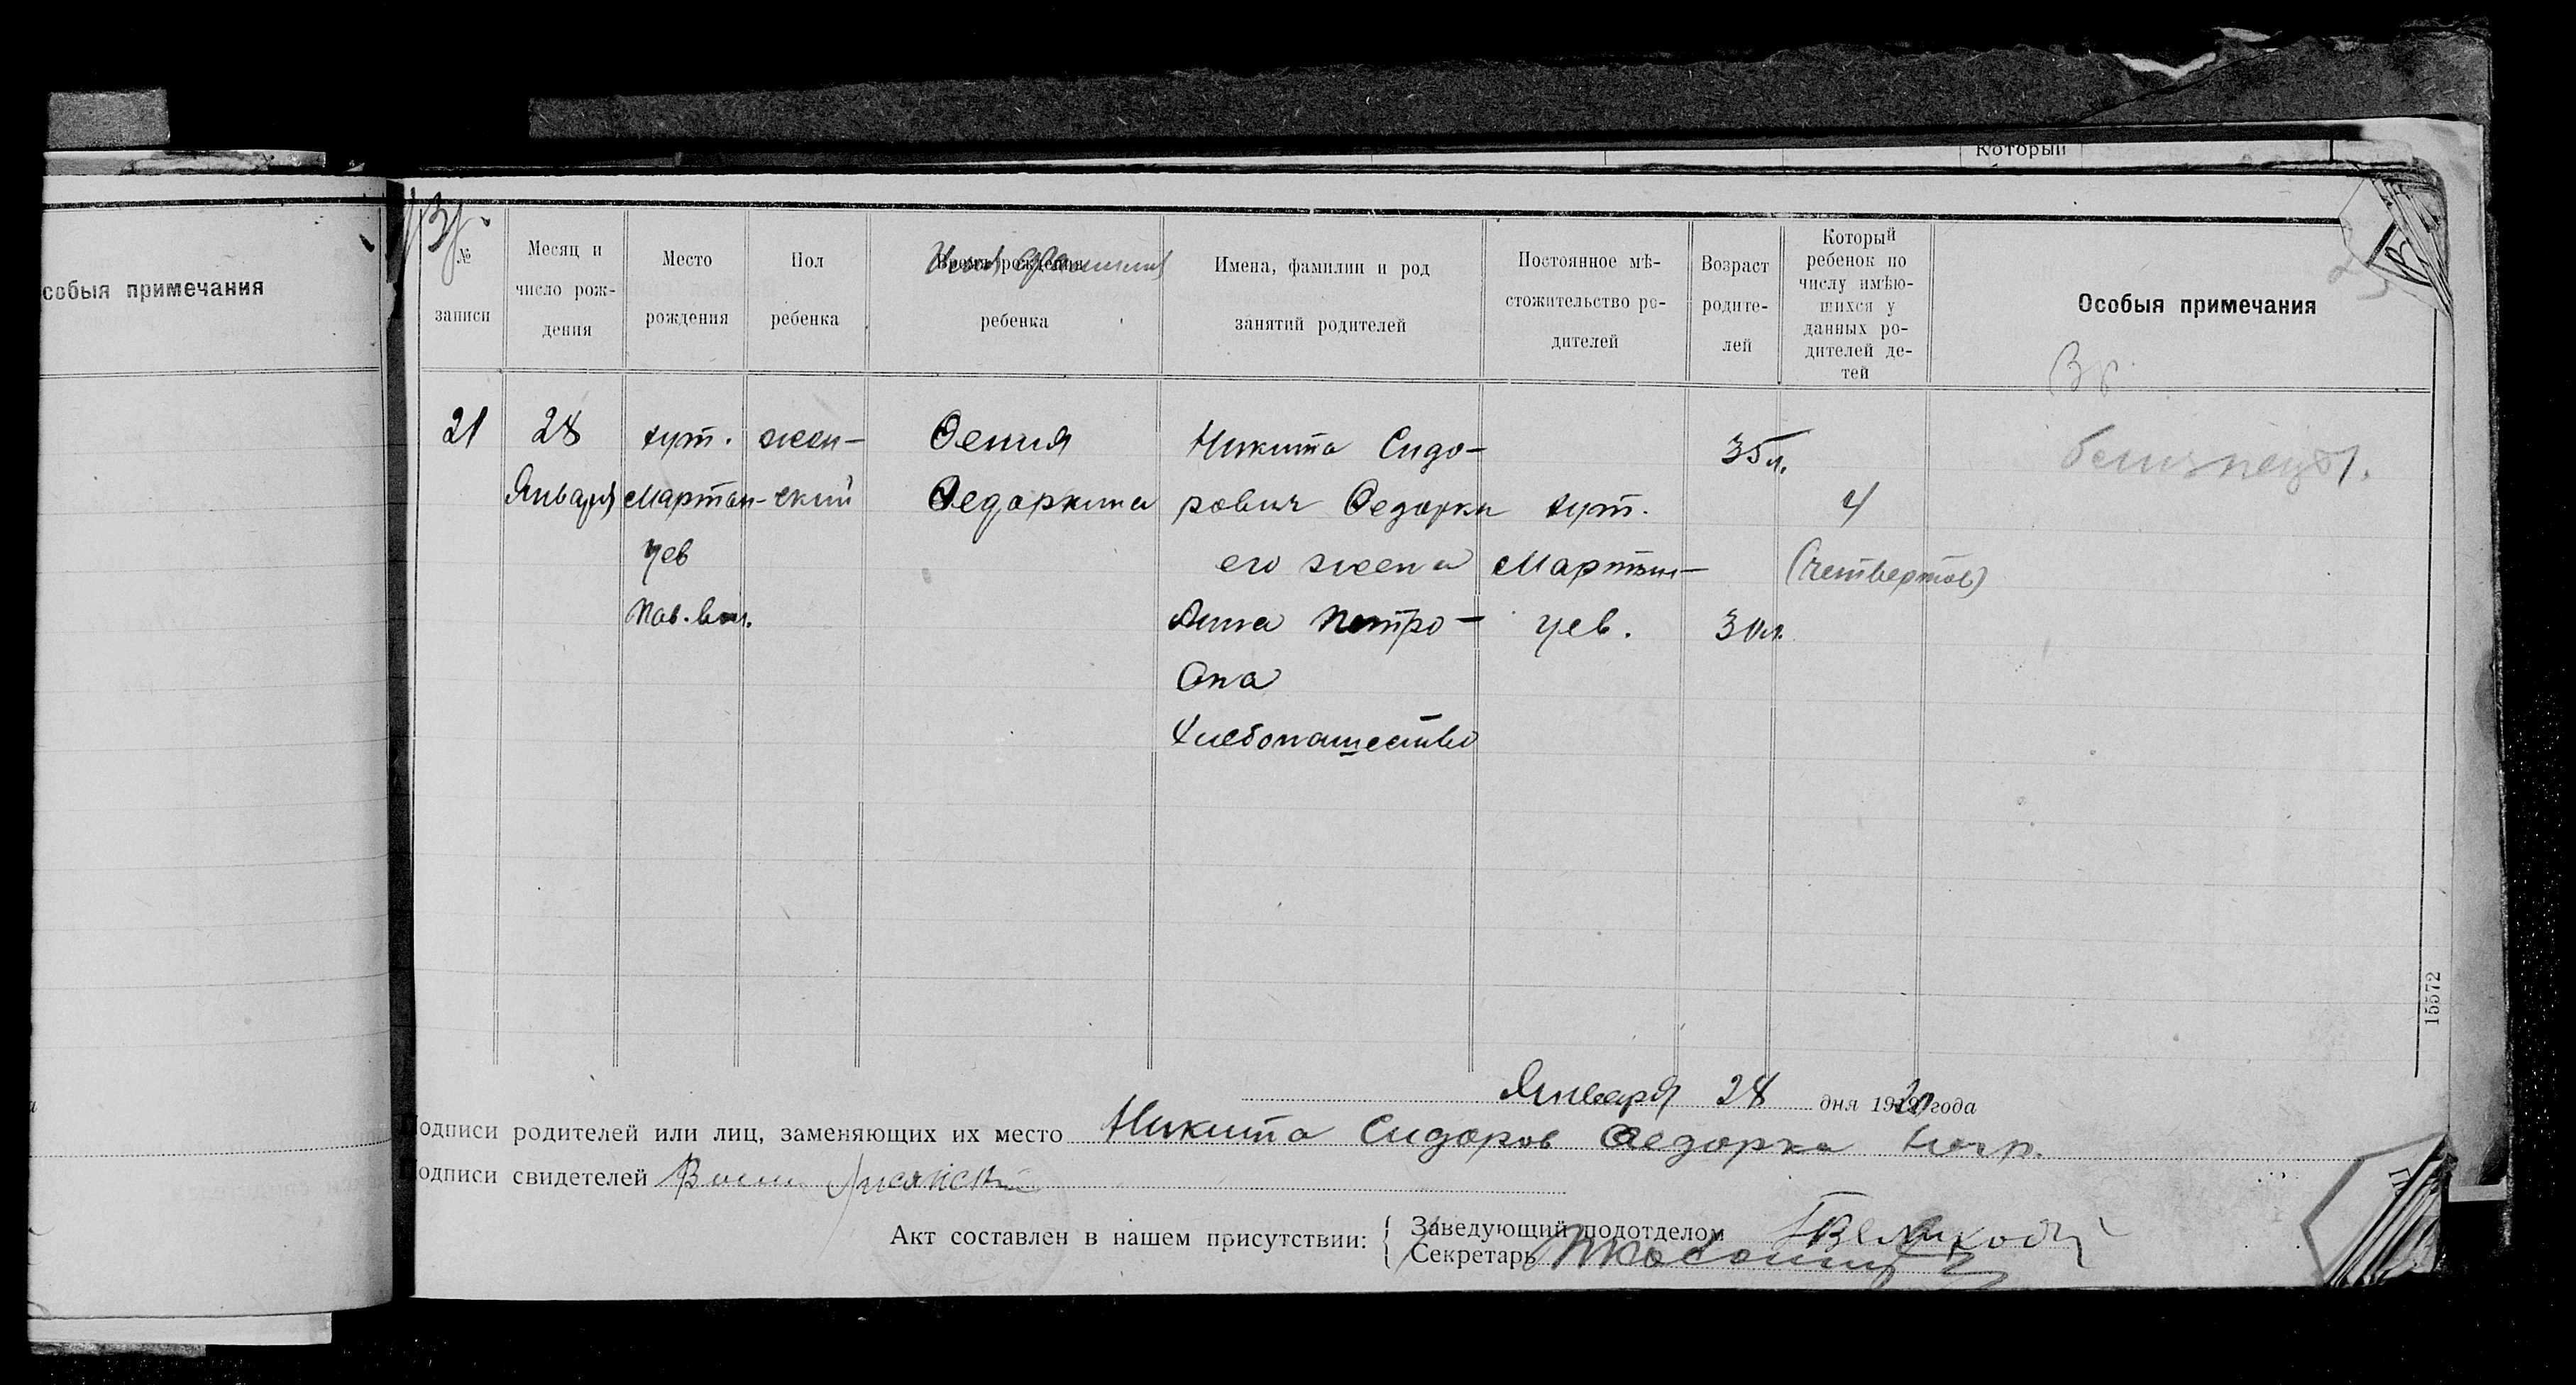 Который
собыя примечания
№
записи
Месяц и
число рож-
дения
Место
рождения
Пол
ребенка
Время рождения
ребенка
Имена, фамилии и род
занятий родителей
Постоянное мѣ-
стожительство ро-
дителей
Возраст
родите-
лей
Который
ребенок по
числу имѣю-
шихся у
данных ро-
дителей де-
тей
Особыя примечания
21
28
Января
хут.
Мартын-
цев
Пав. вол.
жен-
ский
Ѳения
Ѳедоркина
Никита Сидо-
рович Ѳедорки
его жена
Анна Петро-
Она
Хлебопашество
хут.
Мартын-
цев.
35 л.
30 л.
4
(четвертов)
15572
Января 28 дня 1920 года
одписи родителей или лиц, заменяющих их место Никита Сидоров Ѳедорка негр.
одписи свидетелей
Акт составлен в нашем присутствии:
Заведующий подотделом
Секретарь